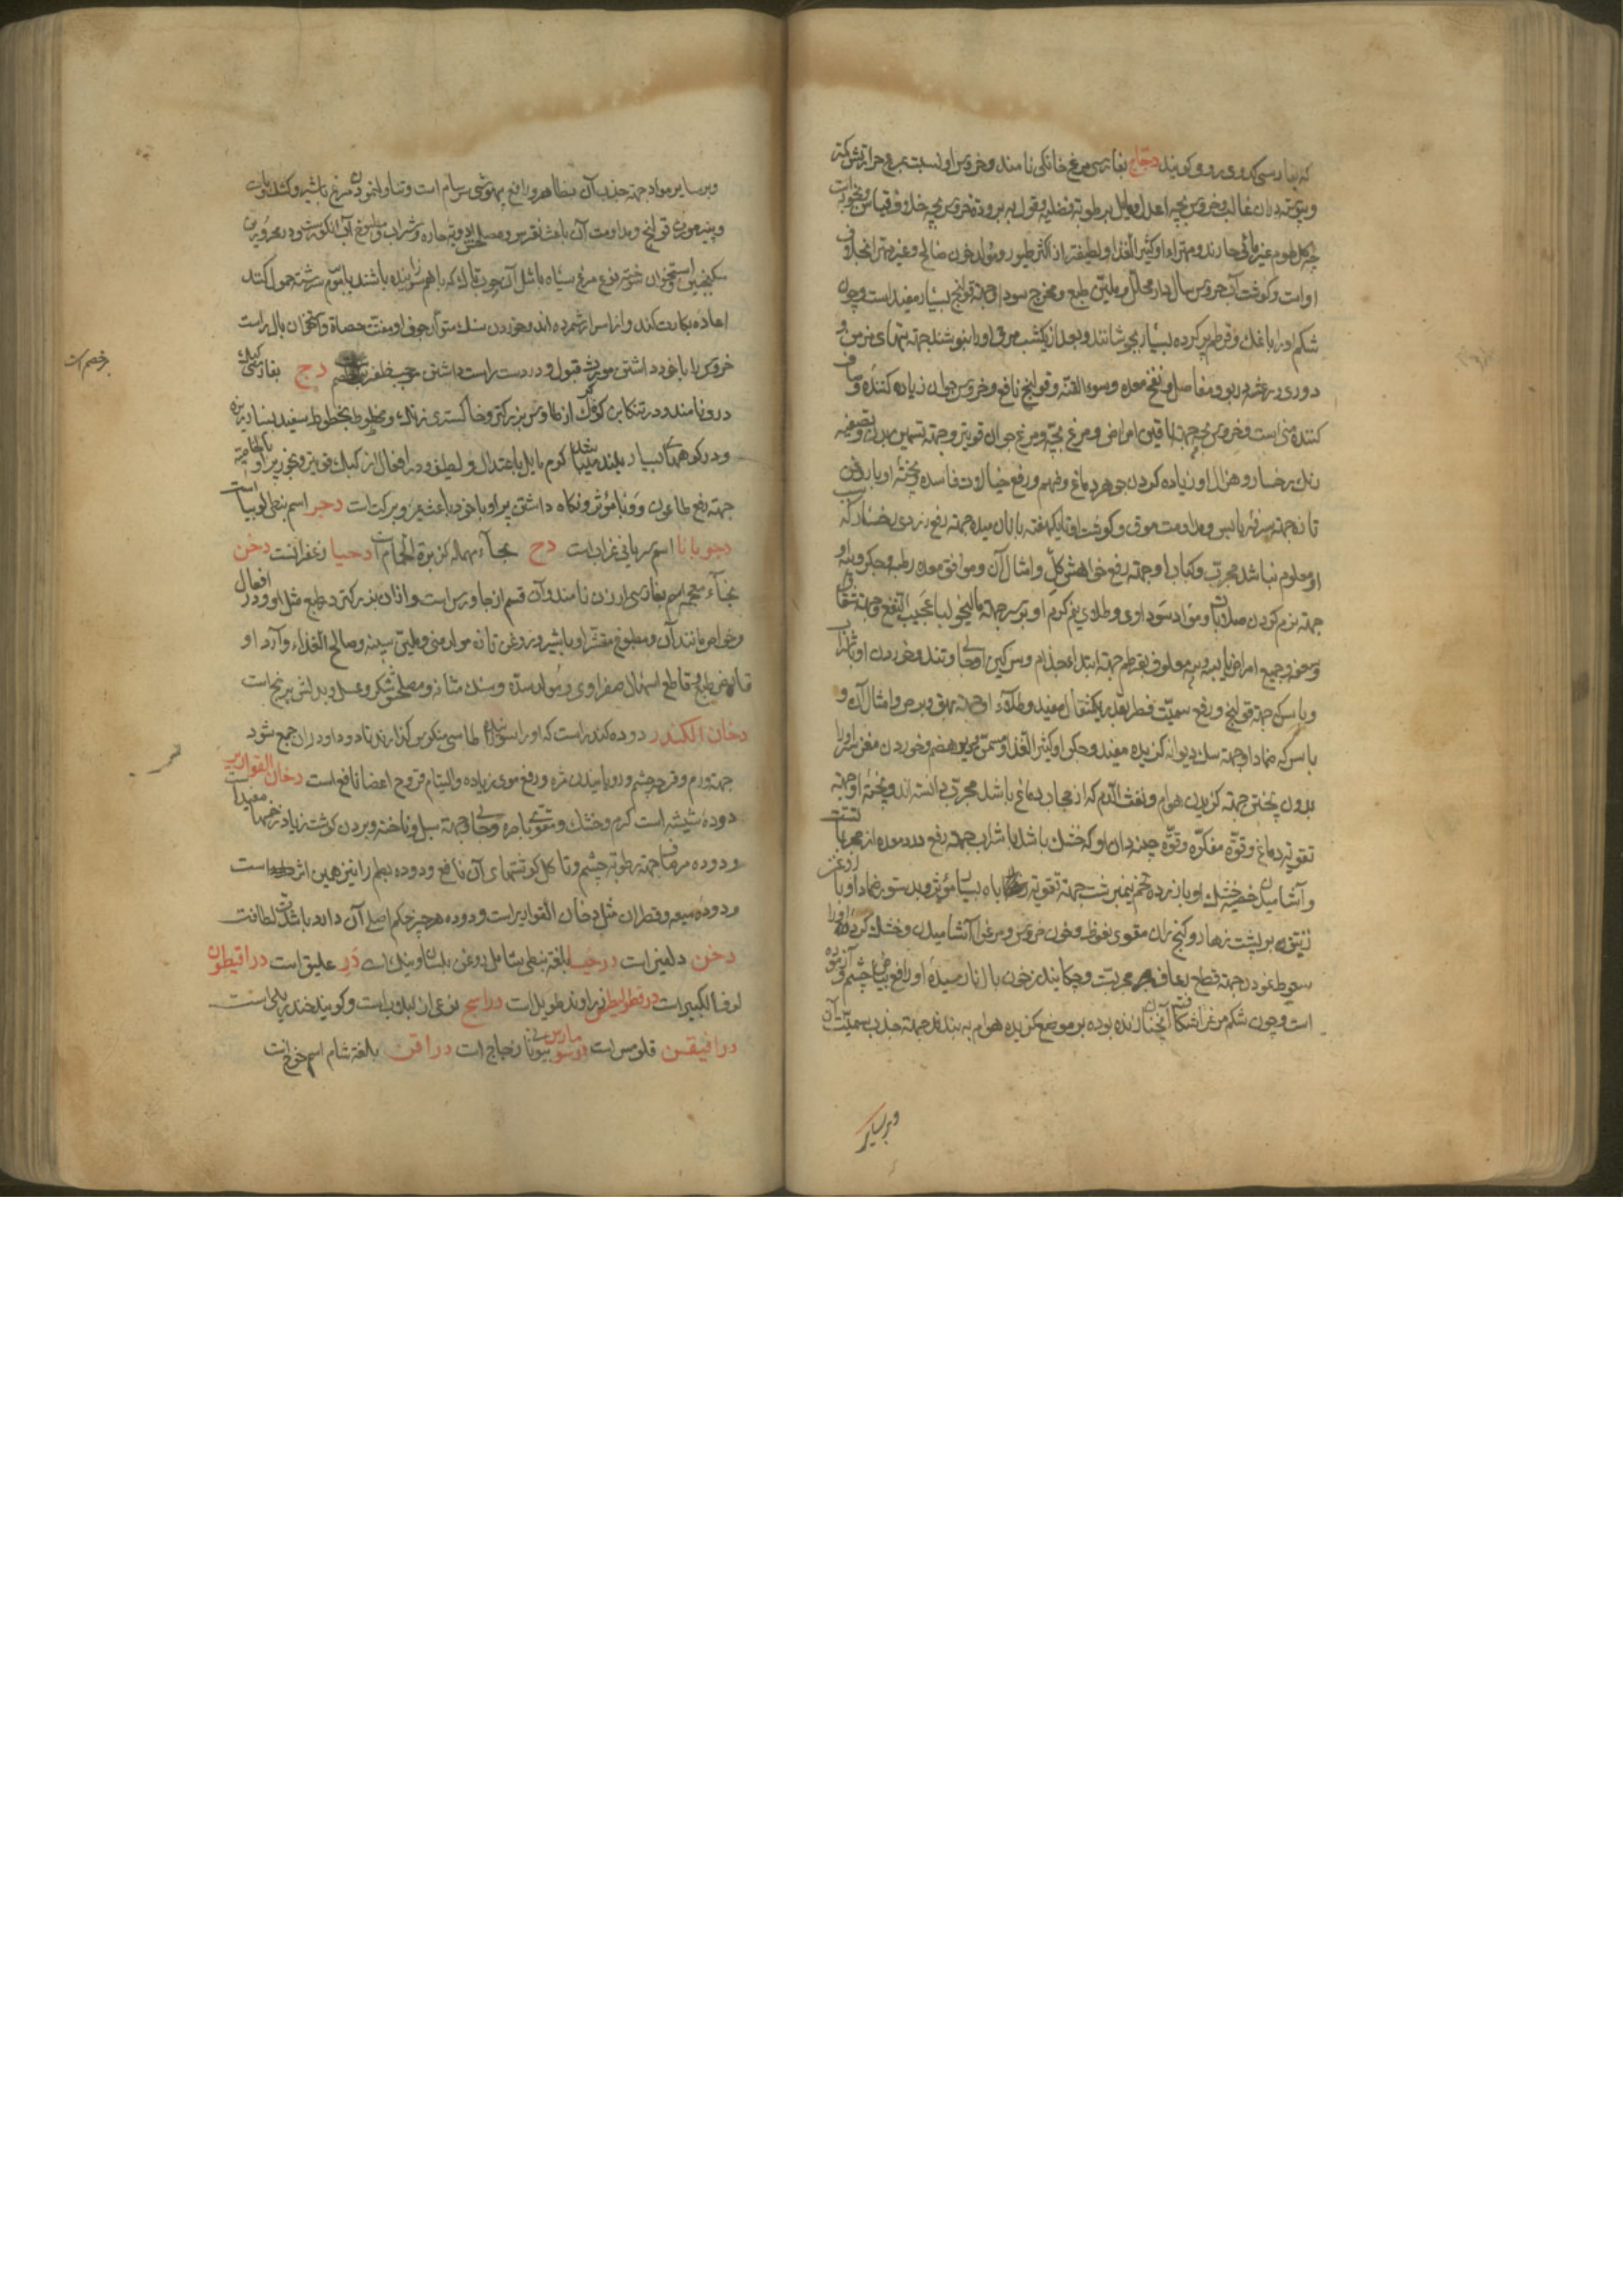 که بفارسی کدوی رومی کویند دجاج بفارسی مرغ خانکی نامند و خروس او نسبت بمرغ حرارتش کمتر
و یبوستش بران غالب و خروس بچه اعدل و مایل برطوبة فضلیه و بقول به برودة خروس بچه خلاف قیاس و تجربه است
چه کل طیور غیر مائی حارند و مهترا او کثیر الغذا و لطیفتر از اکثر طیور و مولد خون صالح و غیر مهترا بخلاف
او است و کوشت آب خروس سال دار محلل و ملین طبع و مخرج سودا و جهة قولنج بسیار مفید است و چون
شکم او را با نمک و قرطم پر کرده بسیار بجوشانند و بعد از یکشب مرق او را بنوشند جهة تبهای مزمن و
دوری و رعشه و ربو و مفاصل و نفخ معده و سوء القنیه و قولنج نافع و خروس جوان زیاده کننده و صاف
کننده منی است و خروس بچه جهة ناقهین امراض و مرغ بچه و مرغ جوان قویتر و جهة تسمین بدن و تصفیه
رنک رخسار و هزال و زیاده کردن جوهر دماغ و فهم و رفع خیالات فاسده و پختهٔ او با روغن
تازه جهة سرفهٔ یابس و مداومت مرق و کوشت او تا یکهفته با نان میده جهة رفع زردی رخسار که سبب
او معلوم نباشد مجرب و کباب او جهة رفع خواهش کل و امثال آن و موافق معده رطبه و جکر و پیه او
جهة نرم کردن صلابات و مواد سوداوی و طلای نیم کرم او بر سر جهة مالیخولیا عجیب النفع و جهة شقاق
و سحفه و جمیع امراض یابسه و پیه معلوف بقرطم جهة ابتداء جذام و سرکین او جالی و تند و خوردن او با شراب
و با سرکه جهة قولنج و رفع سمیت فطر بقدر یکمثقال مفید و طلاء او جهة بهق و برص و امثال آن و
با سرکه ضماد او جهة سک دیوانه کزیده مفید و جکر او کثیر الغذا و مسمن و دیر هضم و خوردن مغز سر او را
بدون پختن جهة کزیدن هوام و نفث الدم که از حجاب دماغ باشد مجرب دانسته اند و پختهٔ او جهة
تقویة دماغ و قوة مفکره و قوة چینه دان او که خشک باشد با شراب جهة رفع درد معده از مجربات است
و آشامیدن خصیهٔ خشک او با زرده تخم نیمبرشت جهة تقویة باه بسیار مؤثر و بدستور ضماد او با روغن
زنبق بر پشت زهار و کنج ران مقوی نعوظ و خون خروس و مرغ را آشامیدن و خشک کرده او را
سعوط نمودن جهة قطع رعاف مجربست و چکانیدن خون بال نارسیدهٔ او رافع بیاض چشم و آزموده
است و چون شکم مرغ را شکافته آنچنان زنده بوده بر موضع کزیده هوام به بندند جهة جذب سمیت آن
و بر سایر
و بر سایر مواد جهة جذب آن بظاهر و رافع بیهوشی سرسام است و تناول نمودن مرغ با شیر و کشک و ماست
و پنیر مورث قولنج و مداومت آن باعث نقرس و مصلحش ادویهٔ حاره و شراب و مطبوخ آب انکور است و در محرورین
سکنجبین استخوان سوخته نوع مرغ سیاه باشد آن چوب تاک که با هم سوزانیده باشند با موم سرشته حمول کنند
اعاده بکارت کند و از اسرار شمرده اند و خوردن سنک متولد جوف او مفتت حصاة و استخوان بال راست
خروس را با خود داشتن مورث قبول و در دست راست داشتن موجب ظفر بر خصم دج بفارسی کبک
بر خصم است
دری نامند و در تنکابن کوکک از طاوس بزرکتر و خاکستری رنک و مخطوط بخطوط سفید بسیار ریزه
و در کوههای بسیار بلند میباشد کرم مایل باعتدال و لطیف و در افعال از کبک قویتر و بخور پر او بالخاصیه
جهة رفع طاعون و وبا مؤثر و نکاه داشتن پر او با خود باعث یمن و برکت است دجر اسم نبطی لوبیا است
دجویانا اسم سریانی غراب است دح بحاء مهمله کزبرة الحمام است دحیا زعفرانست دخن
بخاء معجمه اسم بفارسی ارزن نامند و آن قسم از جاورس است و از ان بزرکتر در طبع مثل او و در افعال
و خواص مانند آن و مطبوخ مقشر او با شیر و روغن تازه مولد منی و ملین سینه و صالح الغذاء و آرد او
قابض طبع و قاطع اسهال صفراوی و مولد سده و سنک مثانه و مصلحش شکر و عسل و بدلش برنج است
دخان الکندر دوده کندر است که او را سوزانیده طاسی منکوس کذارند تا دود او در ان جمع شود
جهة ورم و قرحهٔ چشم و رویانیدن مژه و رفع موی زیاده و التیام قروح اعضا نافع است دخان القواریر
دودهٔ شیشه است کرم و خشک و مقوی باصره و جالی و جهة سبل و ناخنه و بردن کوشت زیاد زخمها مفید است
و دوده مرصاف جهة رطوبة چشم و تآکل کوشتهای آن نافع و دوده بطم را نیز همین اثر است
و دودهٔ میعه و قطران مثل دخان القواریر است و دوده هر چیز حکم اصل آن دارد با شدت لطافت
دخن دلفین است درحیا بلغة نبطی شامل روغن بلسان و بنک است دَرِ علیق است دراقیطون
لوف الکبیر است درقطوالیطس زراوند طویل است دراسج نوعی از لبلاب است و کویند خندریلی است
درافیقن قلومس است درسومارس بیونانی زجاج است دراقن بلغة شام اسم خوخ است